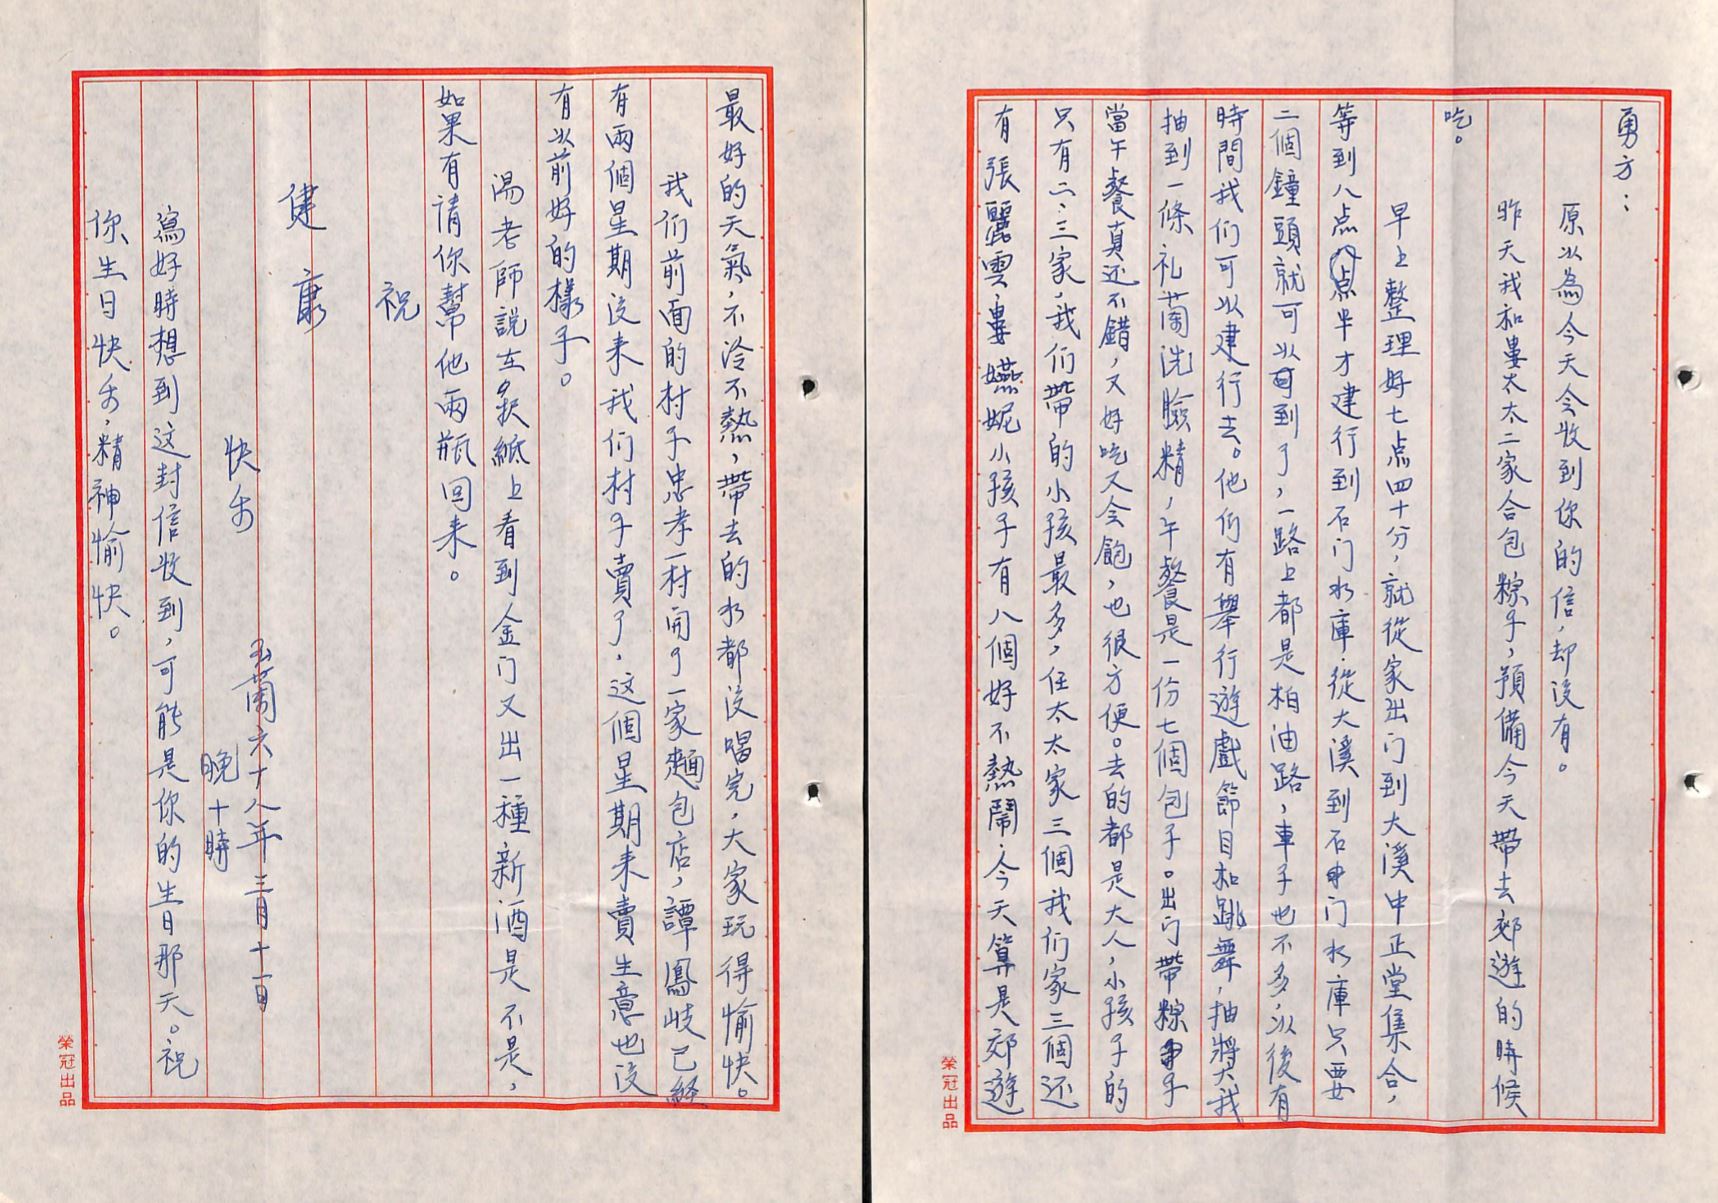 勇方：
原以為今天会收到你的信，却沒有。
昨天我和婁太太二家合包粽子，預備今天帶去郊遊的時候
吃。
早上整理好七点四十分，就從家出门到大溪中正堂集合，
等到八点八点半才建行到石门水庫，從大溪到石门水庫只要
二個鐘頭就可以到了，一路上都是柏油路，車子也不多，以後有
時間我们可以建行去。他们有舉行遊戲節目和跳舞，抽獎我
抽到一條礼蘭洗臉精，午餐是一份七個包子。出门帶粽子
當午餐真还不錯，又好吃又会飽，也很方便。去的都是大人，小孩子的
只有二、三家，我们帶的小孩最多，任太太家三個我们家三個还
有張麗雲，婁嬿妮小孩子有八個好不熱鬧，今天算是郊遊
榮冠出品
最好的天氣，不冷不熱，帶去的水都沒喝完，大家玩得愉快。
我们前面的村子忠孝一村開了一家麵包店，譚鳳岐已經
有兩個星期沒来我们村子賣了，这個星期来賣生意也沒
有以前好的樣子。
湯老師說在報紙上看到金门又出一種新酒是不是，
如果有請你幫他兩瓶回来。
祝
健康
快乐
玉蘭六十八年三月十一日
晚十時
寫好時想到这封信收到，可能是你的生日那天。祝
你生日快乐，精神愉快。
榮冠出品